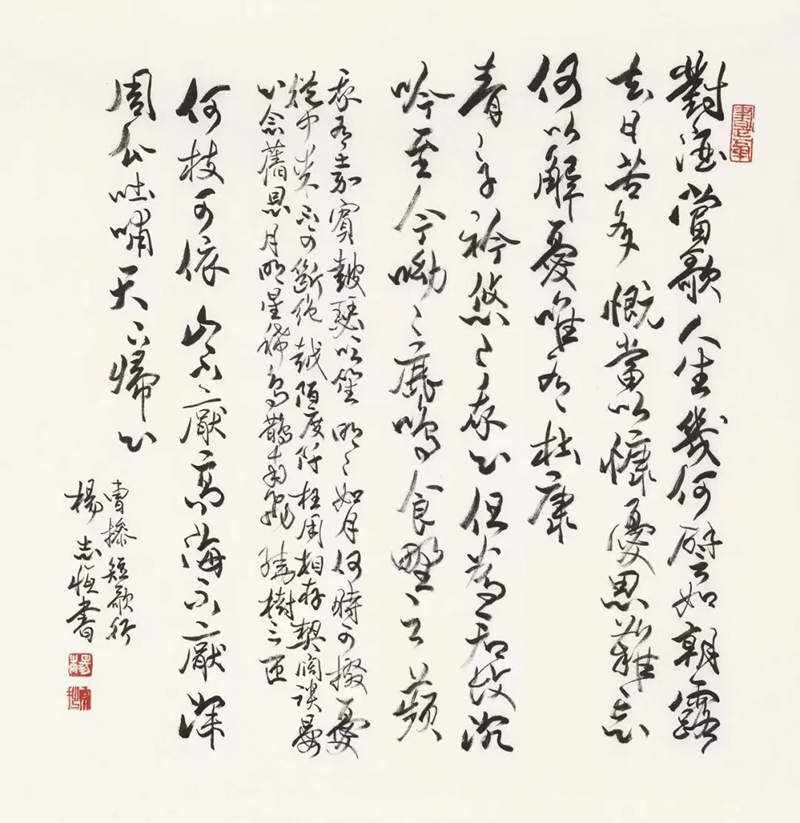 對酒當歌人生幾何譬如朝露
去日苦多慨當以慷憂思難忘
何以解憂唯有杜康
青〻子衿悠〻我心但為君故沉
吟至今呦〻鹿鳴食野之蘋
我有嘉賓鼓瑟吹笙明〻如月何時可掇憂
從中來不可斷絕越陌度阡枉用相存契闊談讌
心念舊恩月明星稀烏鵲南飛繞樹三匝
何枝可依山不厭高海不厭深
周公吐哺天下歸心
曹操短歌行
楊志恒書